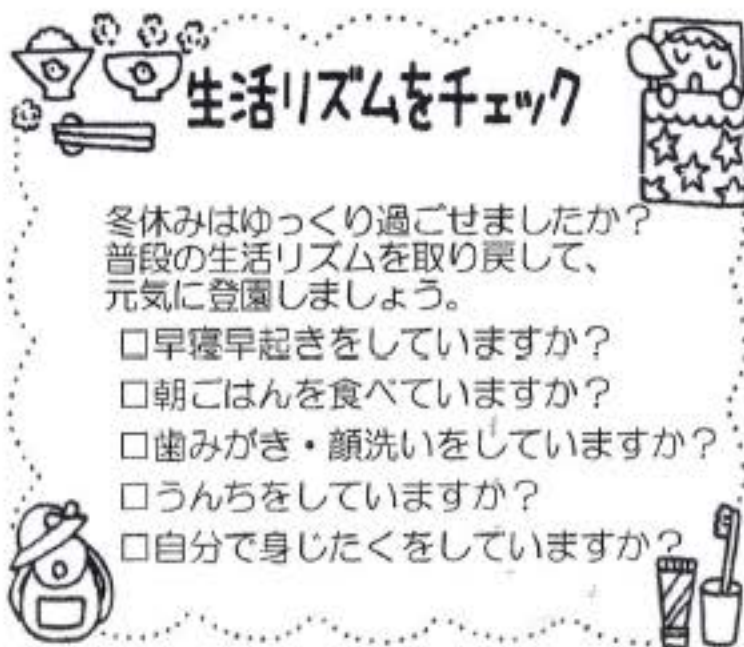 生活リズムをチェック
冬休みはゆっくり過ごせましたか?
普段の生活リズムを取り戻して、
元気に登園しましょう。
□早寝早起きをしていますか?
□朝ごはんを食べていますか?
□歯みがき・顔洗いをしていますか?
□うんちをしていますか?
□自分で身じたくをしていますか?